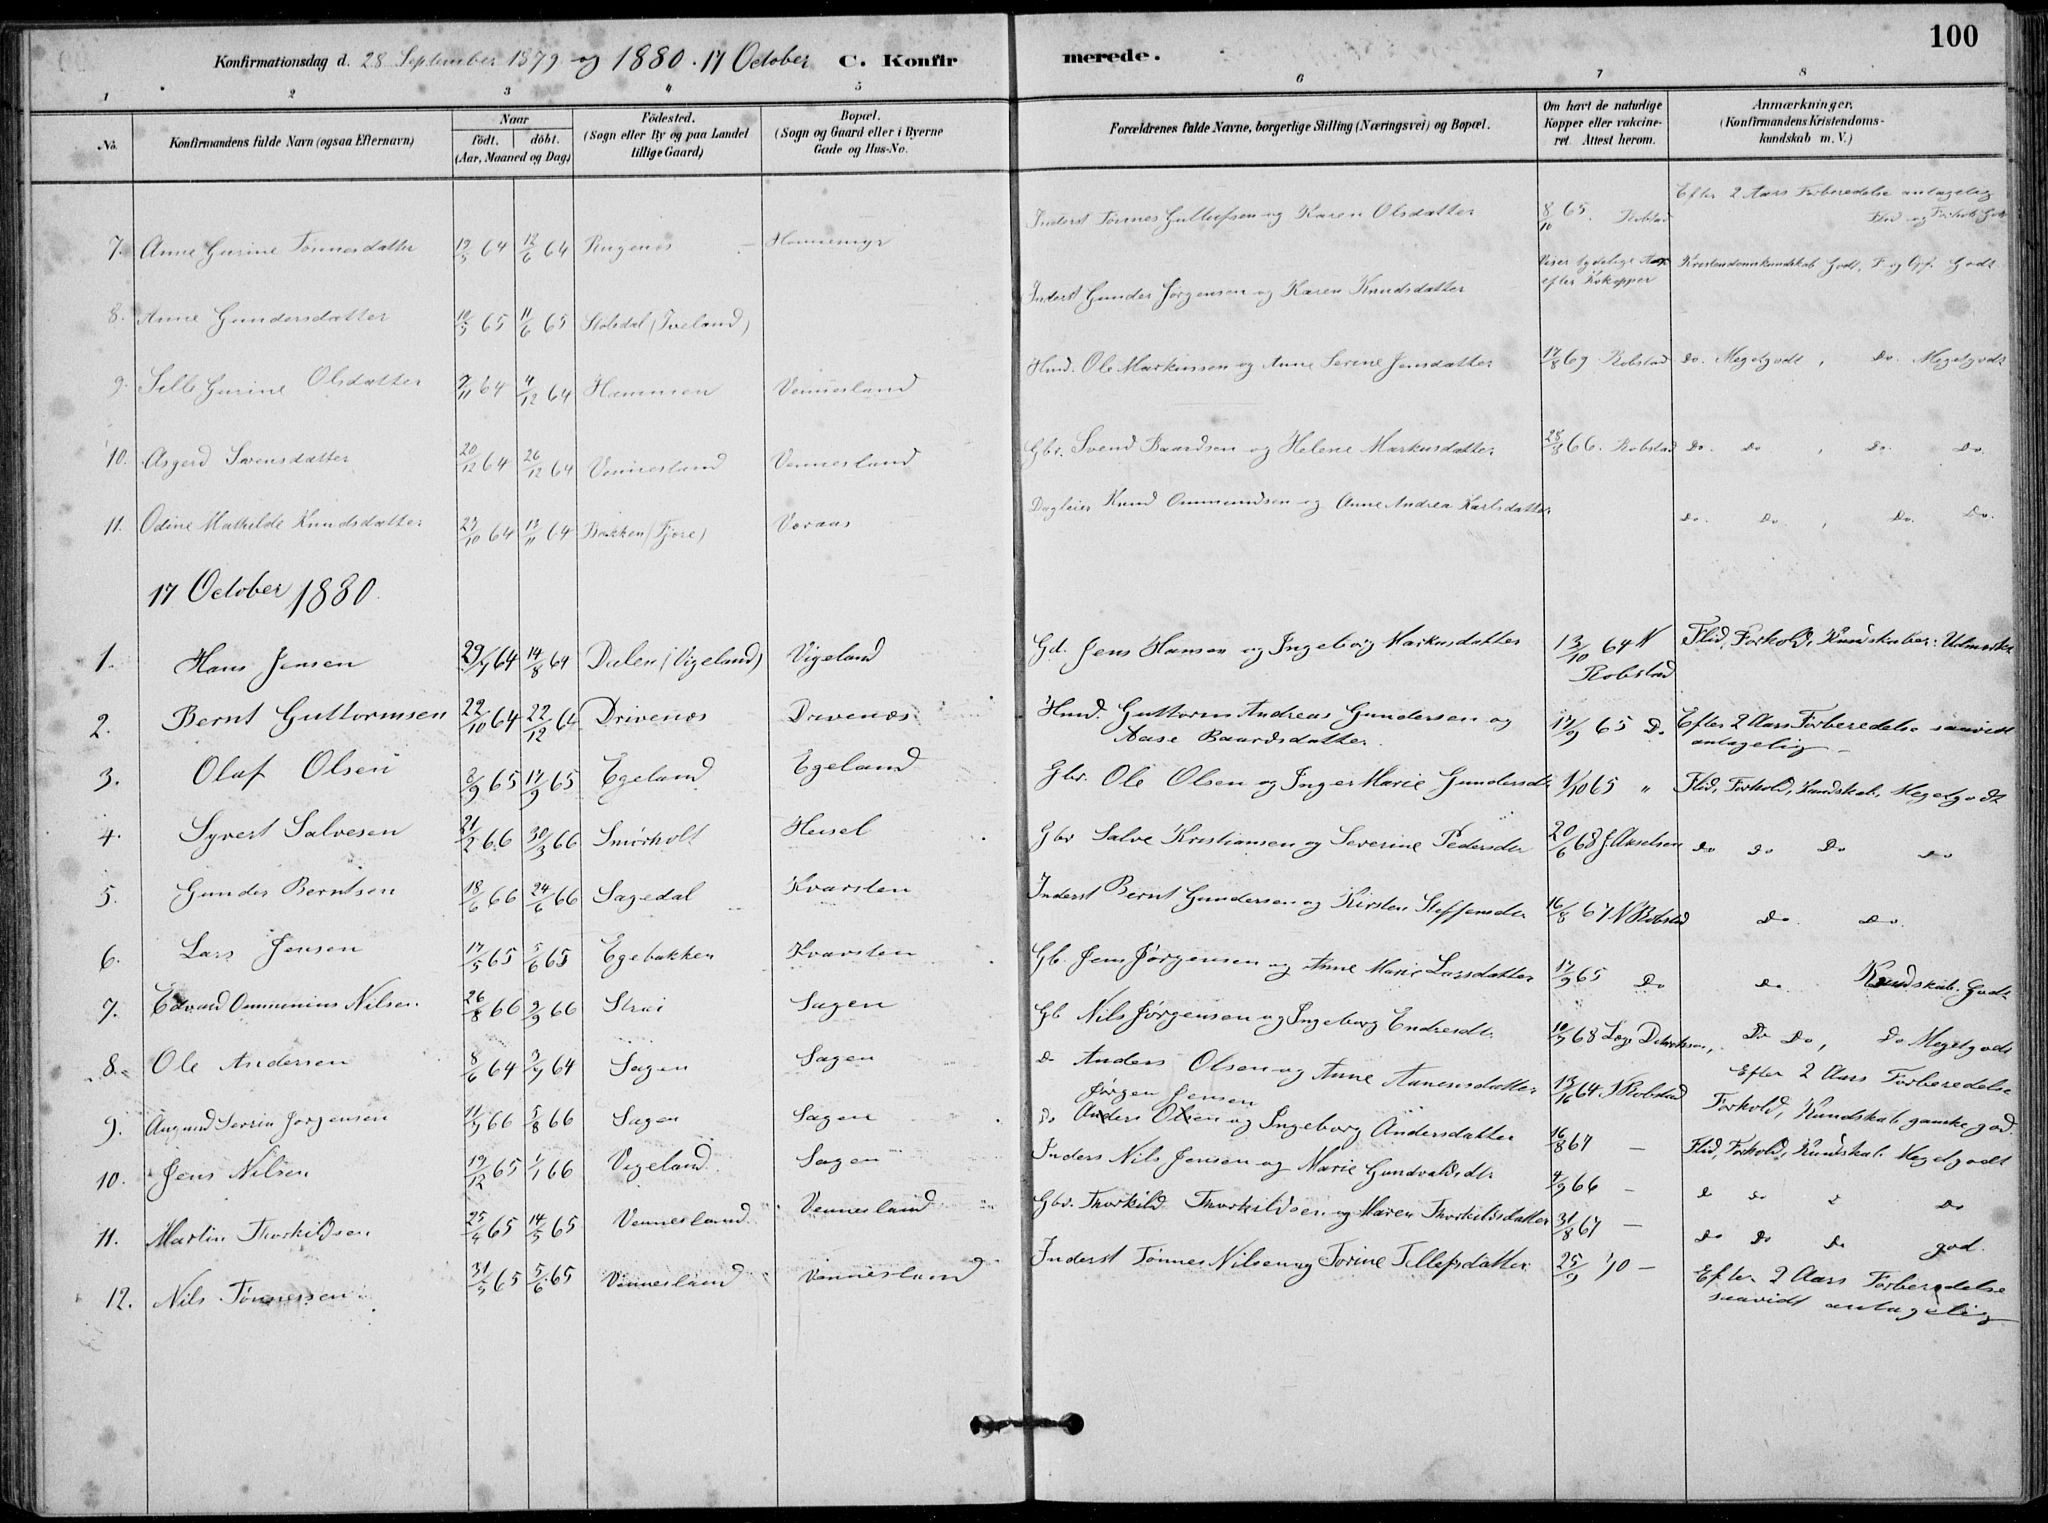 100
Konfirmationsdag d. 28 September 1879 og 1880. 17 October C. Konfirmerede.
1 2 3 4 5 6 7 8
No. Konfirmandens fulde Navn (ogsaa Efternavn) Naar födt. döbt. (Aar, Maaned og Dag) Födested. (Sogn eller By og paa Landet tillige Gaard) Bopæl. (Sogn og Gaard eller i Byerne Gade og Hus-No. Forældrenes fulde Navne, borgerlige Stilling (Næringsvei) og Bopæl. Om havt de naturlige Kopper eller vakcineret. Attest herom. Anmærkninger, (Konfirmandens Kristendomskundskab m. V.)
7. Anne Gurine Tønnesdatter 12/6 64 Ringenes Hommemyr Inderst Tønnes Gullufsen og Karen Olsdatter 8/10 65. Robstad Efter 2 Aars Forberedelse antagelig Flid og Forhold Godt
8. Anne Gundersdatter 10/5 65 11/6 65 Stølsdal (Iveland) Inderst Gunder Jørgensen og Karen Knudsdatter Viser tydelige efter Kokopper Kristendomskundskab Godt, F. og Opf. Godt
9. Sille Gurine Olsdatter 9/11 64 4/12 64 Hammen Vennesland Hmd. Ole Markussen og Anne Serine Jensdatter 17/8 69 Robstad Do. Megetgodt, Do. Megetgodt
10. Asgerd Svensdatter 20/12 64 26/12 64 Vennesland Vennesland Gbr. Svend Baardsen og Helene Markusdatter 28/8 66. Robstad Do. Do , Do. Do.
11. Odine Mathilde Knudsdatter 23/10 64 13/11 64 Bakken (Fjøre) Voraas Dagleier Knud Ommundsen og Anne Andrea Karlsdatter Do. Do. , Do. Do.
17 October 1880.
1. Hans Jensen 29/7 64 14/8 64 Dalen (Vigeland) Vigeland Gd. Jens Hansen og Ingeborg Markusdatter 13/10 64 N Robstad Flid, Forhold, Kundskaber: Udmærket
2. Bernt Guttormsen 22/10 64 22/12 64 Drivenes Drivenes Hmd. Guttorm Andreas Gundersen og Aase Baardsdatter. 17/9 65 Do Efter 2 Aars Forberedelse saavidt antagelig
3. Olaf Olsen 3/9 65 17/9 65 Egeland Egeland Gbr. Ole Olsen og Inger Marie Gundersdt 1/10 65 " Flid, Forhold, Kundskab, Megetgodt
4. Syvert Salvesen 21/2 66 30/3 66 Smörholt Heisel Gbr Salve Kristiansen og Severine Pedersdr 20/6 68 J. Axelsen Do Do Do Do
5. Gunder Berntsen 18/6 66 24/6 66 Sagedal Kvarsten Inderst Bernt Gundersen og Kirsten Steffensdr 16/8 67 N Robstad Do. Do.
6. Lars Jensen 17/5 65 5/6 65 Egebakken Kvarsten Gb. Jens Jørgensen og Anne Marie Larsdatter 17/9 65 Do Do Kundskab. Godt
7. Edvard Ommunius Nilsen. 26/8 66 2/9 66 Strai Sagen Gb Nils Jørgensen og Ingeborg Endresdt. 10/9 68 Læge Do Do, Do Megetgodt
8. Ole Andersen 8/6 64 3/7 64 Sagen Sagen Do Anders Olsen og Anne Aanensdatter 64 N Robstad Efter 2 Aars Forberedelse Forhold, Kundskab ganske god.
9. Aanund Severin Jørgensen 11/7 66 5/8 66 Sagen Sagen Do Anders Olsen Jørgen Jensen og Ingeborg Andersdatter 16/8 67 — Flid, Forhold, Kundskab. Megetgodt
10. Jens Nilsen 19/12 65 1/1 66 Vigeland Sagen Inders Nils Jensen og Marie Gundvaldsdt. 4/9 66 — Do Do Do Do
11. Martin Thorkildsen 25/4 65 14/5 65 Vennesland Vennesland Gbr. Thorkild Thorkildsen og Maren Thorkildsdatter 31/8 67 — Do Do Do god.
12. Nils Tønnessen 31/5 65 5/6 65 Vennesland Vennesland Inderst Tønnes Nilsen og Torine Tellefsdatter 25/9 70 — Efter 2 Aars Forberedelse saavidt antagelig